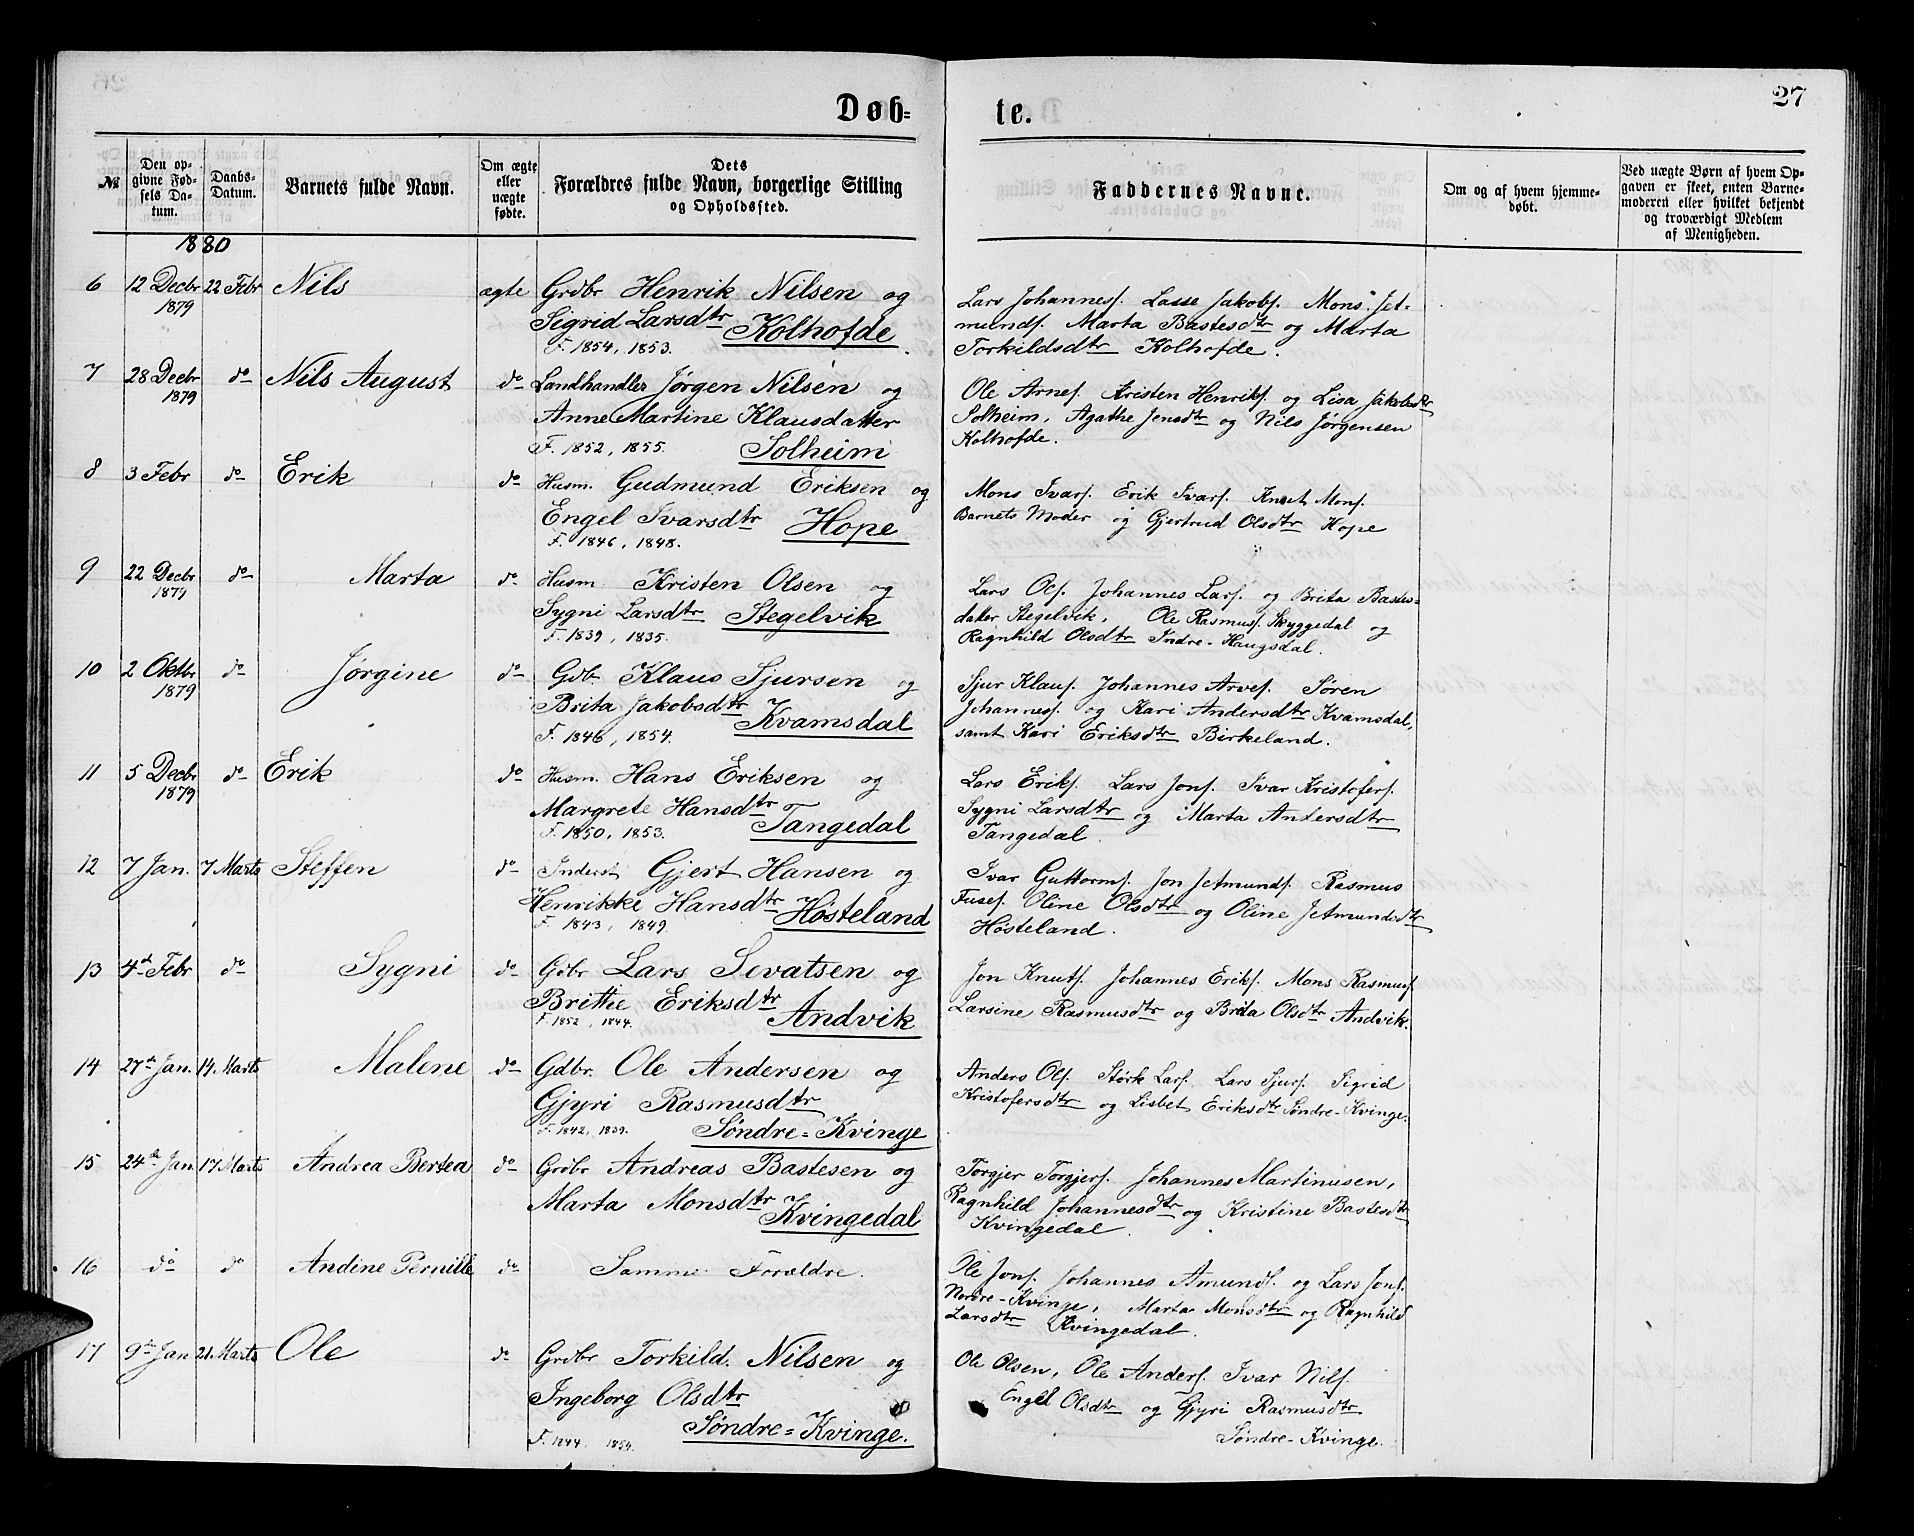 Døb-
te.
27
№
Den op-
givne Fød-
sels Da-
tum.
Daabs-
Datum.
Barnets fulde Navn.
Om ægte
eller
uægte
fødte.
Dets
Forældres fulde Navn, borgerlige Stilling
og Opholdssted.
Faddernes Navne.
Om og af hvem hjemme-
døbt.
Ved uægte Børn af hvem Op-
gaven er skeet, enten Barne-
moderen eller hvilket bekjendt
og troværdigt Medlem
af Menigheden.
1880
6 12 Decbr 22 Febr Nils ægte Grdbr Henrik Nilsen og
1879
Sigrid Larsdtr Kolhofde
F. 1854, 1853.
Lars Johannesf. Lasse Jakobf. Mons Jet-
mundf. Marta Bastesdtr og Marta
Torkildsdtr Kolhofde.
7 28 Decbr do Nils August do Landhandler Jørgen Nilsen og
1879
Anne Martine Klausdatter
F. 1852, 1855. Solheim
Ole Arnef. Kristen Henrikf. og Lisa Jakobsdtr
Solheim, Agathe Jensdtr og Nils Jørgensen
Kolhofde.
8 3 Febr do Erik do Husm. Gudmund Eriksen og
Engel Ivarsdtr Hope
F. 1846, 1848.
Mons Ivarf. Erik Ivarf. Knut Monf.
Barnets Moder og Gjertrud Olsdtr Hope
9 22 Decbr do Marta do Husm Kristen Olsen og
1879
Sygni Larsdtr Stegelvik
F. 1839, 1835.
Lars Olf. Johannes Larf. og Brita Bastes-
datter Stegelvik, Ole Rasmusf. Skyggedal og
Ragnhild Olsdtr Indre-Haugsdal.
10 2 Oktbr do Jørgine do Gdb. Klaus Sjursen og
1879
Brita Jakobsdtr Kvamsdal
F. 1846, 1854.
Sjur Klausf. Johannes Arvef. Søren
Johannesf. og Kari Andersdtr Kvamsdal,
samt Kari Eriksdtr Birkeland.
11 5 Decbr do Erik do Husm. Hans Eriksen og
1879
Margrete Hansdtr Tangedal
F. 1850, 1853.
Lars Erikf. Lars Jonf. Ivar Kristoferf.
Sygni Larsdtr og Marta Andersdtr
Tangedal.
12 7 Jan. 7 Marts Steffen do Inderst Gjert Hansen og
Henrikke Hansdtr Høsteland
F. 1843, 1849.
Ivar Guttormf. Jon Jetmundf. Rasmus
Fusef. Oline Olsdtr og Oline Jetmundsdtr
Høsteland.
13 4de Febr do Sygni do Gdbr Lars Sevatsen og
Brithe Eriksdtr Andvik
F. 1852, 1844.
Jon Knutf. Johannes Erikf. Mons Rasmusf
Larsine Rasmusdtr og Brita Olsdtr Andvik.
14 27de Jan. 14. Marts Malene do Gdbr. Ole Andersen og
Gjyri Rasmusdtr
F. 1842, 1839. Søndre-Kvinge
Anders Olf. Størk Larf. Lars Sjurf. Sigrid
Kristofersdtr og Lisbet Eriksdtr Søndre-Kvinge.
15 24de Jan 17 Marts Andrea Bertea do Grdbr Andreas Bastesen og
Marta Monsdtr Kvingedal
Torgjer Torgjerf. Johannes Martinusen,
Ragnhild Johannesdtr og Kristine Bastesdtr
Kvingedal.
16 do do Andine Pernille do Samme Forældre.
Ole Jonf. Johannes Amundf. og Lars Jonf.
Nordre-Kvinge, Marta Monsdtr og Ragnhild
Larsdtr Kvingedal.
17 9de Jan 21. Marts Ole do Grdbr Torkild Nilsen og
Ingeborg Olsdtr
F. 1844. 1854. Søndre-Kvinge.
Ole Olsen, Ole Andersf. Ivar Nilsf.
Engel Olsdtr og Gjyri Rasmusdtr
Søndre-Kvinge.